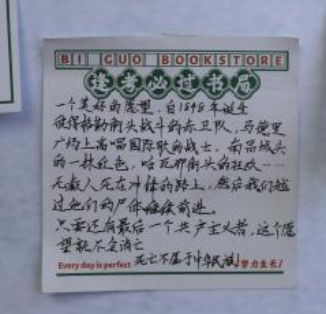 BI GUO BOOKSTORE
逢考必过书局
一个美好的愿望，自1848年诞生
彼得格勒街头战斗的赤卫队，马德里
广场上高唱国际歌的战士，南昌城头
的一抹红色，哈瓦那街头的狂欢……
无数人死在冲锋的路上，然后我们越
过他们的尸体继续前进。
只要还有最后一个共产主义者，这个愿
望就不会消亡
Every day is perfect 死亡不属于中华民族！努力生长！